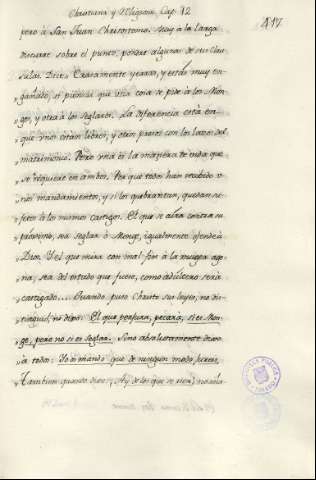 Christiana y Religiosa, Cap. 12
417
pero à San Juan Chrisostomo. muy à la larga
discurre sobre el punto, pondré algunas de sus Clau-
sulas. Dice: Claramente yerras, y estas muy en-
gañado, si piensas que una cosa se pide à los Mon-
ges, y otra à los seglares. La diferencia està en
que unos estan libres, y otros presos con los lazos del
matrimonio. Pero una es la manera de vida que
se requiere en ambos. Por que todos han recibido u-
nos mandamientos, y si los quebrantan, quedan su-
jetos à los mismos castigos. El que se aira contra su
proximo, sea seglar ò Monge, igualmente ofende à
Dios. Y el que mira con mal fin à la muger age-
na, sea del estado que fuere, como adúltero serà
castigado... Quando puso Christo sus leyes, no dis-
tinguió, no dixo: El que perjura, pecará, si es Mon-
ge, pero no si es seglar. Sino absolutamente decia
à todos: Yo os mando que de ningun modo jureis.
Tambien quando dixo: Ay de los que se rien; no aña-